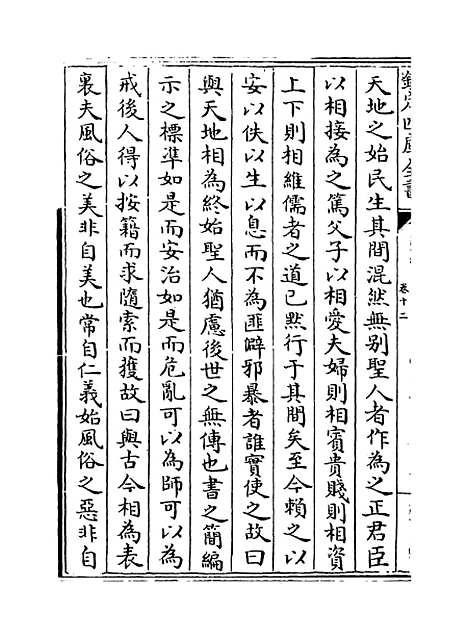 欽定四庫全書
卷十二
天地之始民生其間混然無别聖人者作為之正君臣
以相接為之篤父子以相愛夫婦則相賓貴賤則相資
上下則相維儒者之道已黙行于其間矣至今賴之以
安以佚以生以息而不為匪僻邪暴者誰實使之故曰
與天地相為終始聖人猶慮後世之無傳也書之簡編
示之標準如是而安治如是而危亂可以為師可以為
戒後人得以按籍而求隨索而獲故曰與古今相為表
裏夫風俗之美非自美也常自仁義始風俗之惡非自